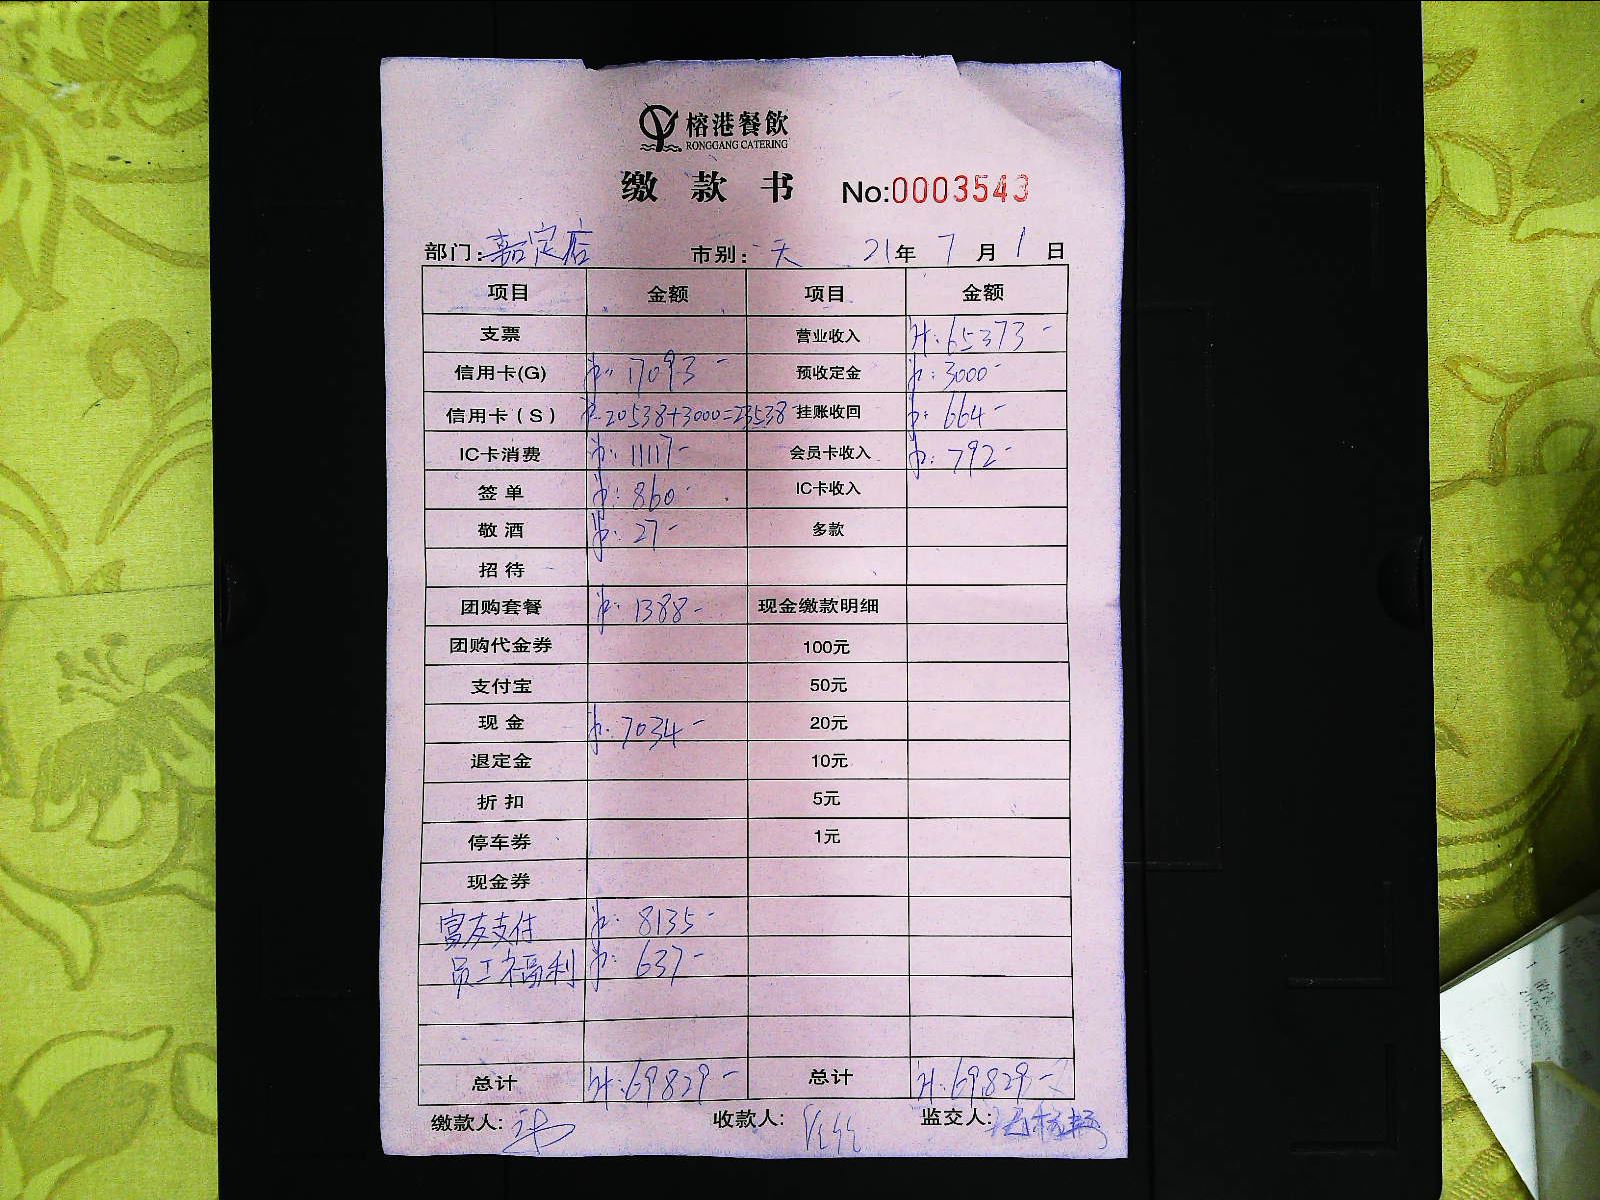 榕港餐飲
RONGGANG CATERING
缴款书 No:0003543
部门: 嘉定店 市别: 天 21年 7月 1日
项目 金额 项目 金额
支票 营业收入 计: 65373-
信用卡(G) 计: 17093- 预收定金 计: 3000-
信用卡（S） 计: 20538+3000=23538 挂账收回 计: 664-
IC卡消费 计: 11117- 会员卡收入 计: 792-
签单 计: 860- IC卡收入
敬酒 计: 27- 多款
招待
团购套餐 计: 1388- 现金缴款明细
团购代金券 100元
支付宝 50元
现金 计: 7034- 20元
退定金 10元
折扣 5元
停车券 1元
现金券
富友支付 计: 8135-
员工福利 计: 637-
总计 计: 69829- 总计 计: 69829-
缴款人: 收款人: 监交人: